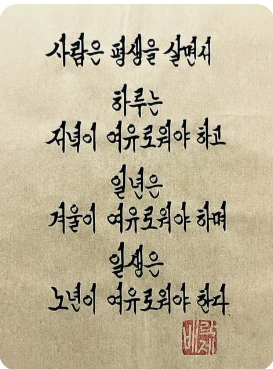 사람은 평생을 살면서
하루는
저녁이 여유로워야 하고
일년은
겨울이 여유로워야 하며
일생은
노년이 여유로워야 한다